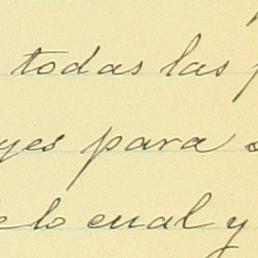 todas las
yes para
lo cual y